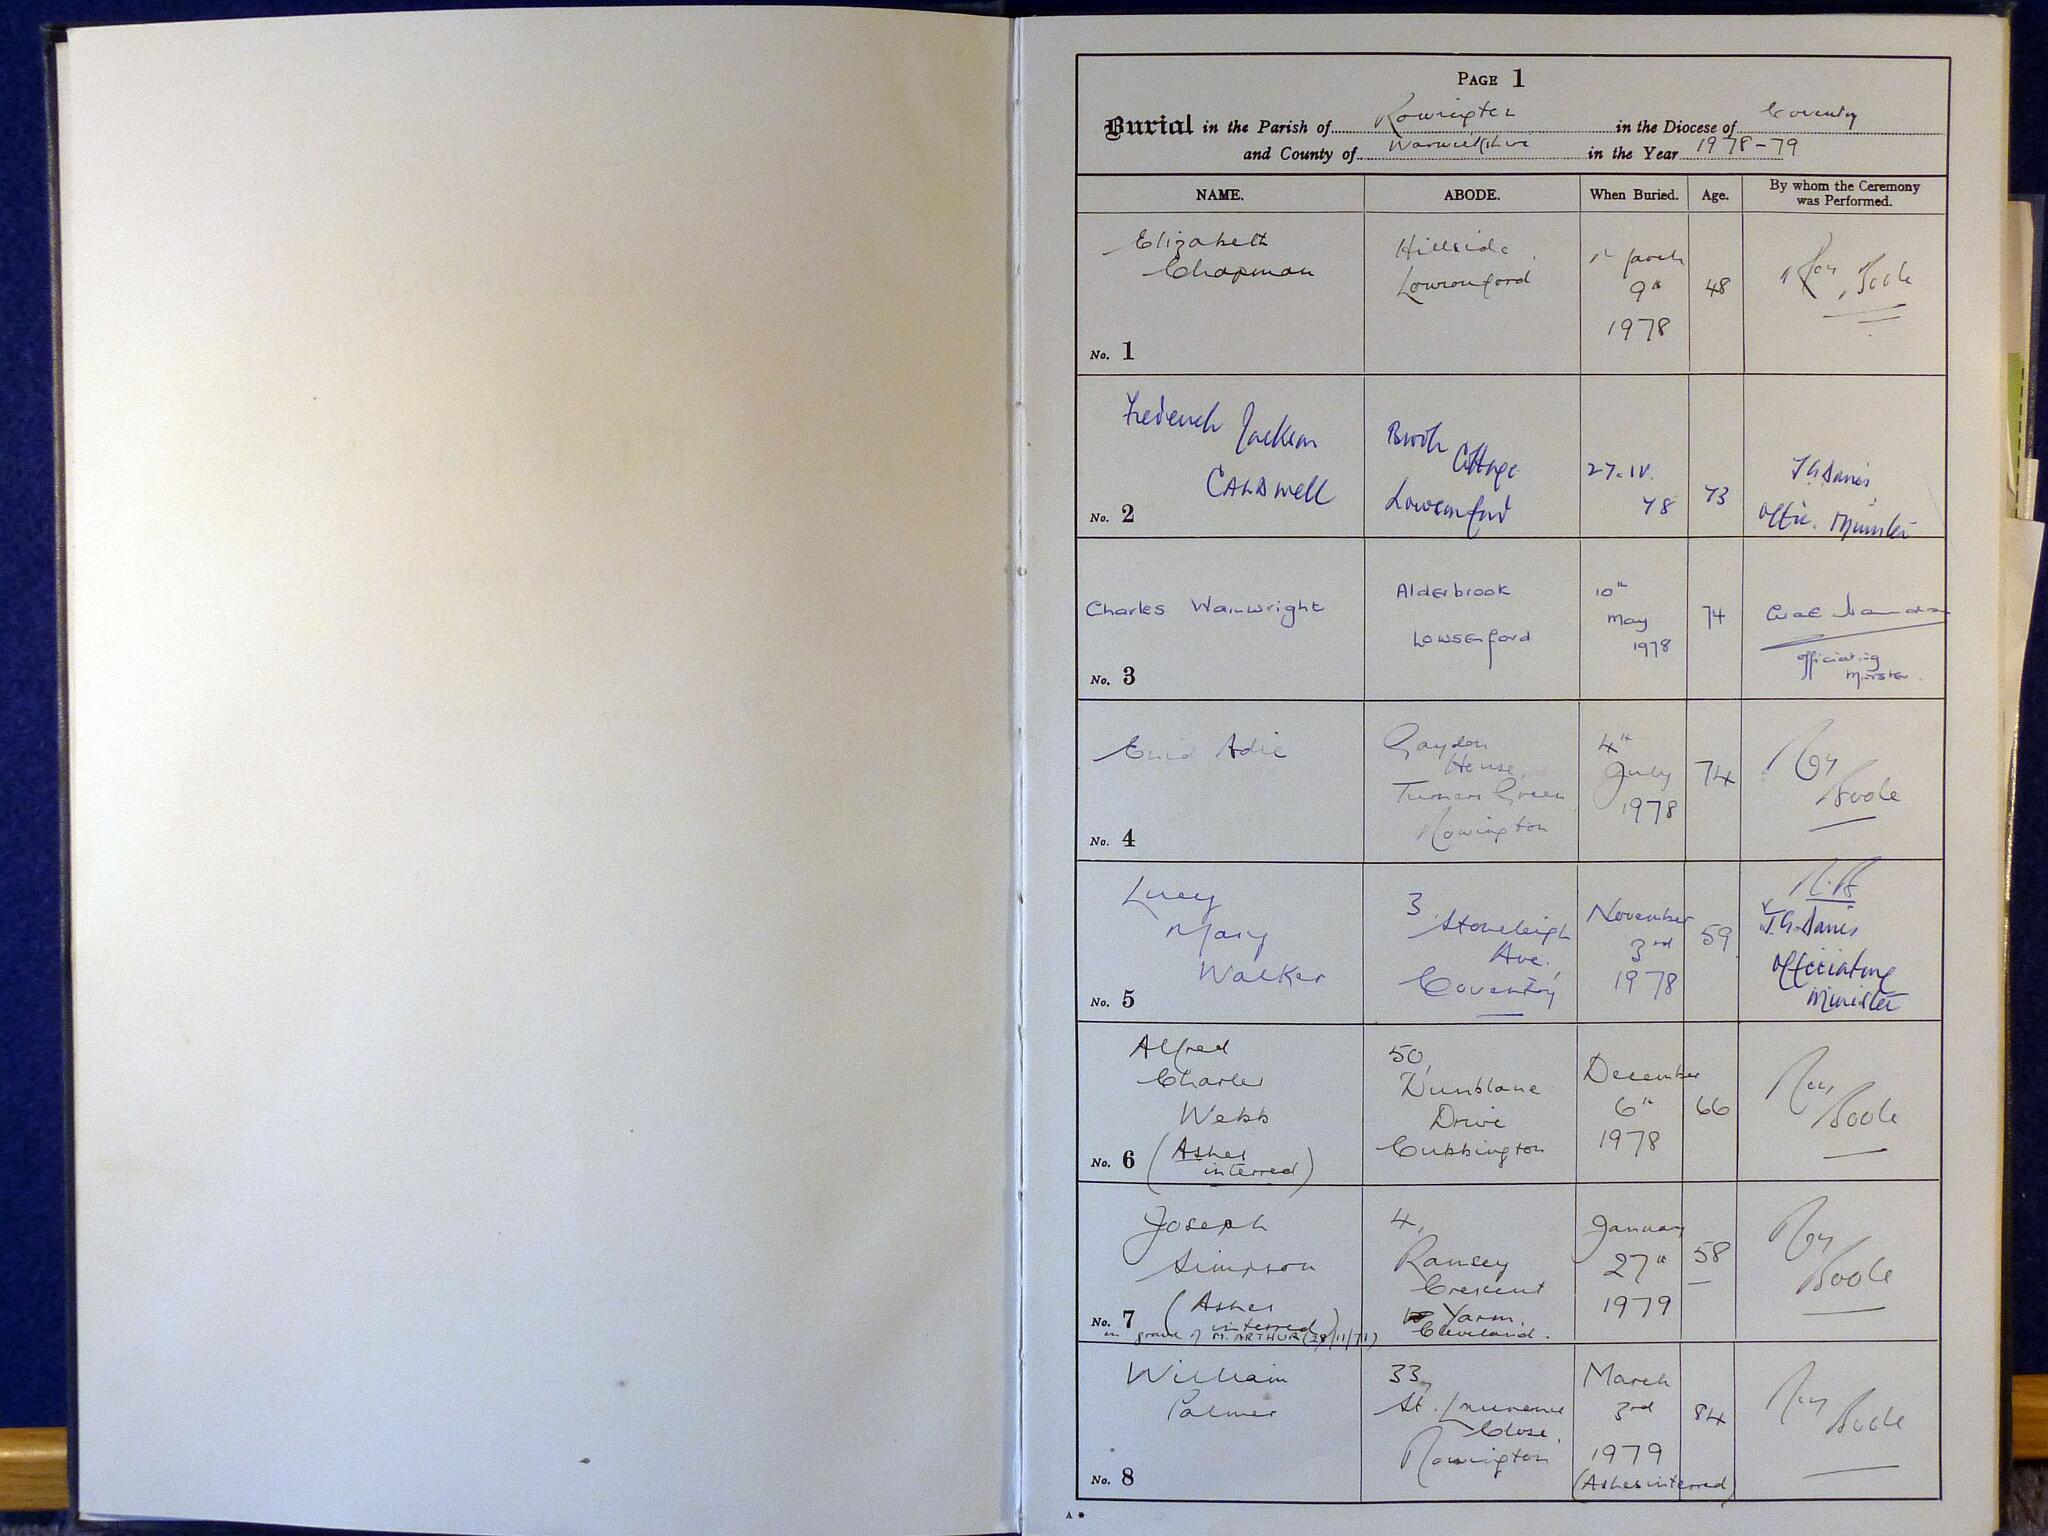 PAGE 1
Burial in the Parish of Rowington in the Diocese of Coventry
and County of Warwickshire in the Year 1978-79
NAME. ABODE. When Buried. Age. By whom the Ceremony was Performed.
Elizabeth Hillside March Roy Boole
Chapman Lowsonford 9th 48
1978
No. 1
Frederick Jackson Brook
Cottage
CALDWELL Lowsonford 27.IV. 78 73 T.G. Davies,
No. 2 Offic. Minister
Charles Wainwright Alderbrook 10th 74
Lowsenford May
1978 officiating
No. 3 Minister.
Enid Adie Gaydon 4th Roy
House, July 74 Boole
Turners Green 1978
Rowington
No. 4
Lucy 3, November R.B.
Mary Stoneleigh 3rd 59 T.G. Davies
Walker Ave., 1978 Officiating
No. 5 Coventry Minister
Alfred 50, December Roy
Charles Dunblane 6th 66 Boole
Webb Drive 1978
No. 6 (Ashes interred) Cubbington
Joseph 4, January Roy
Simpson Ramsey 27th 58 Boole
(Ashes Crescent 1979
No. 7 interred) Yarm.
in grave of M. ARTHUR (28/11/71) Cleveland.
William 33, March Roy
Palmer St. Laurence 3rd 84 Boole
Close, 1979
Rowington (Ashes interred)
No. 8
A *